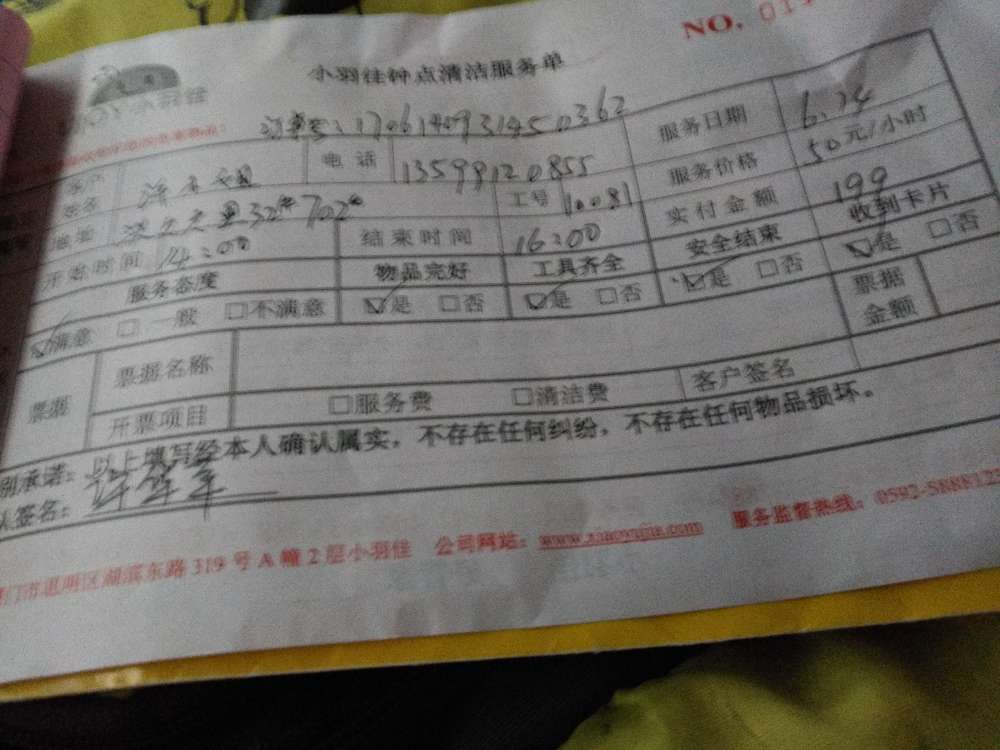 NO. 019
小羽佳
小羽佳钟点清洁服务单
订单号：170614093145 0362
客户姓名 电话 13599120855 服务日期 6.24
地址 32 702 工号 10081 服务价格 50元/小时
开始时间 14:00 结束时间 16:00 实付金额 199
服务态度 物品完好 工具齐全 安全结束 收到卡片
满意 □一般 □不满意 是 □否 是 □否 是 □否 是 □否
票据 票据名称 票据金额
开票项目 □服务费 □清洁费 客户签名
别承诺：以上填写经本人确认属实，不存在任何纠纷，不存在任何物品损坏。
人签名：
门市思明区湖滨东路319号A幢2层小羽佳 公司网站：www.xiaoyujia.com 服务监督热线：0592-5888122